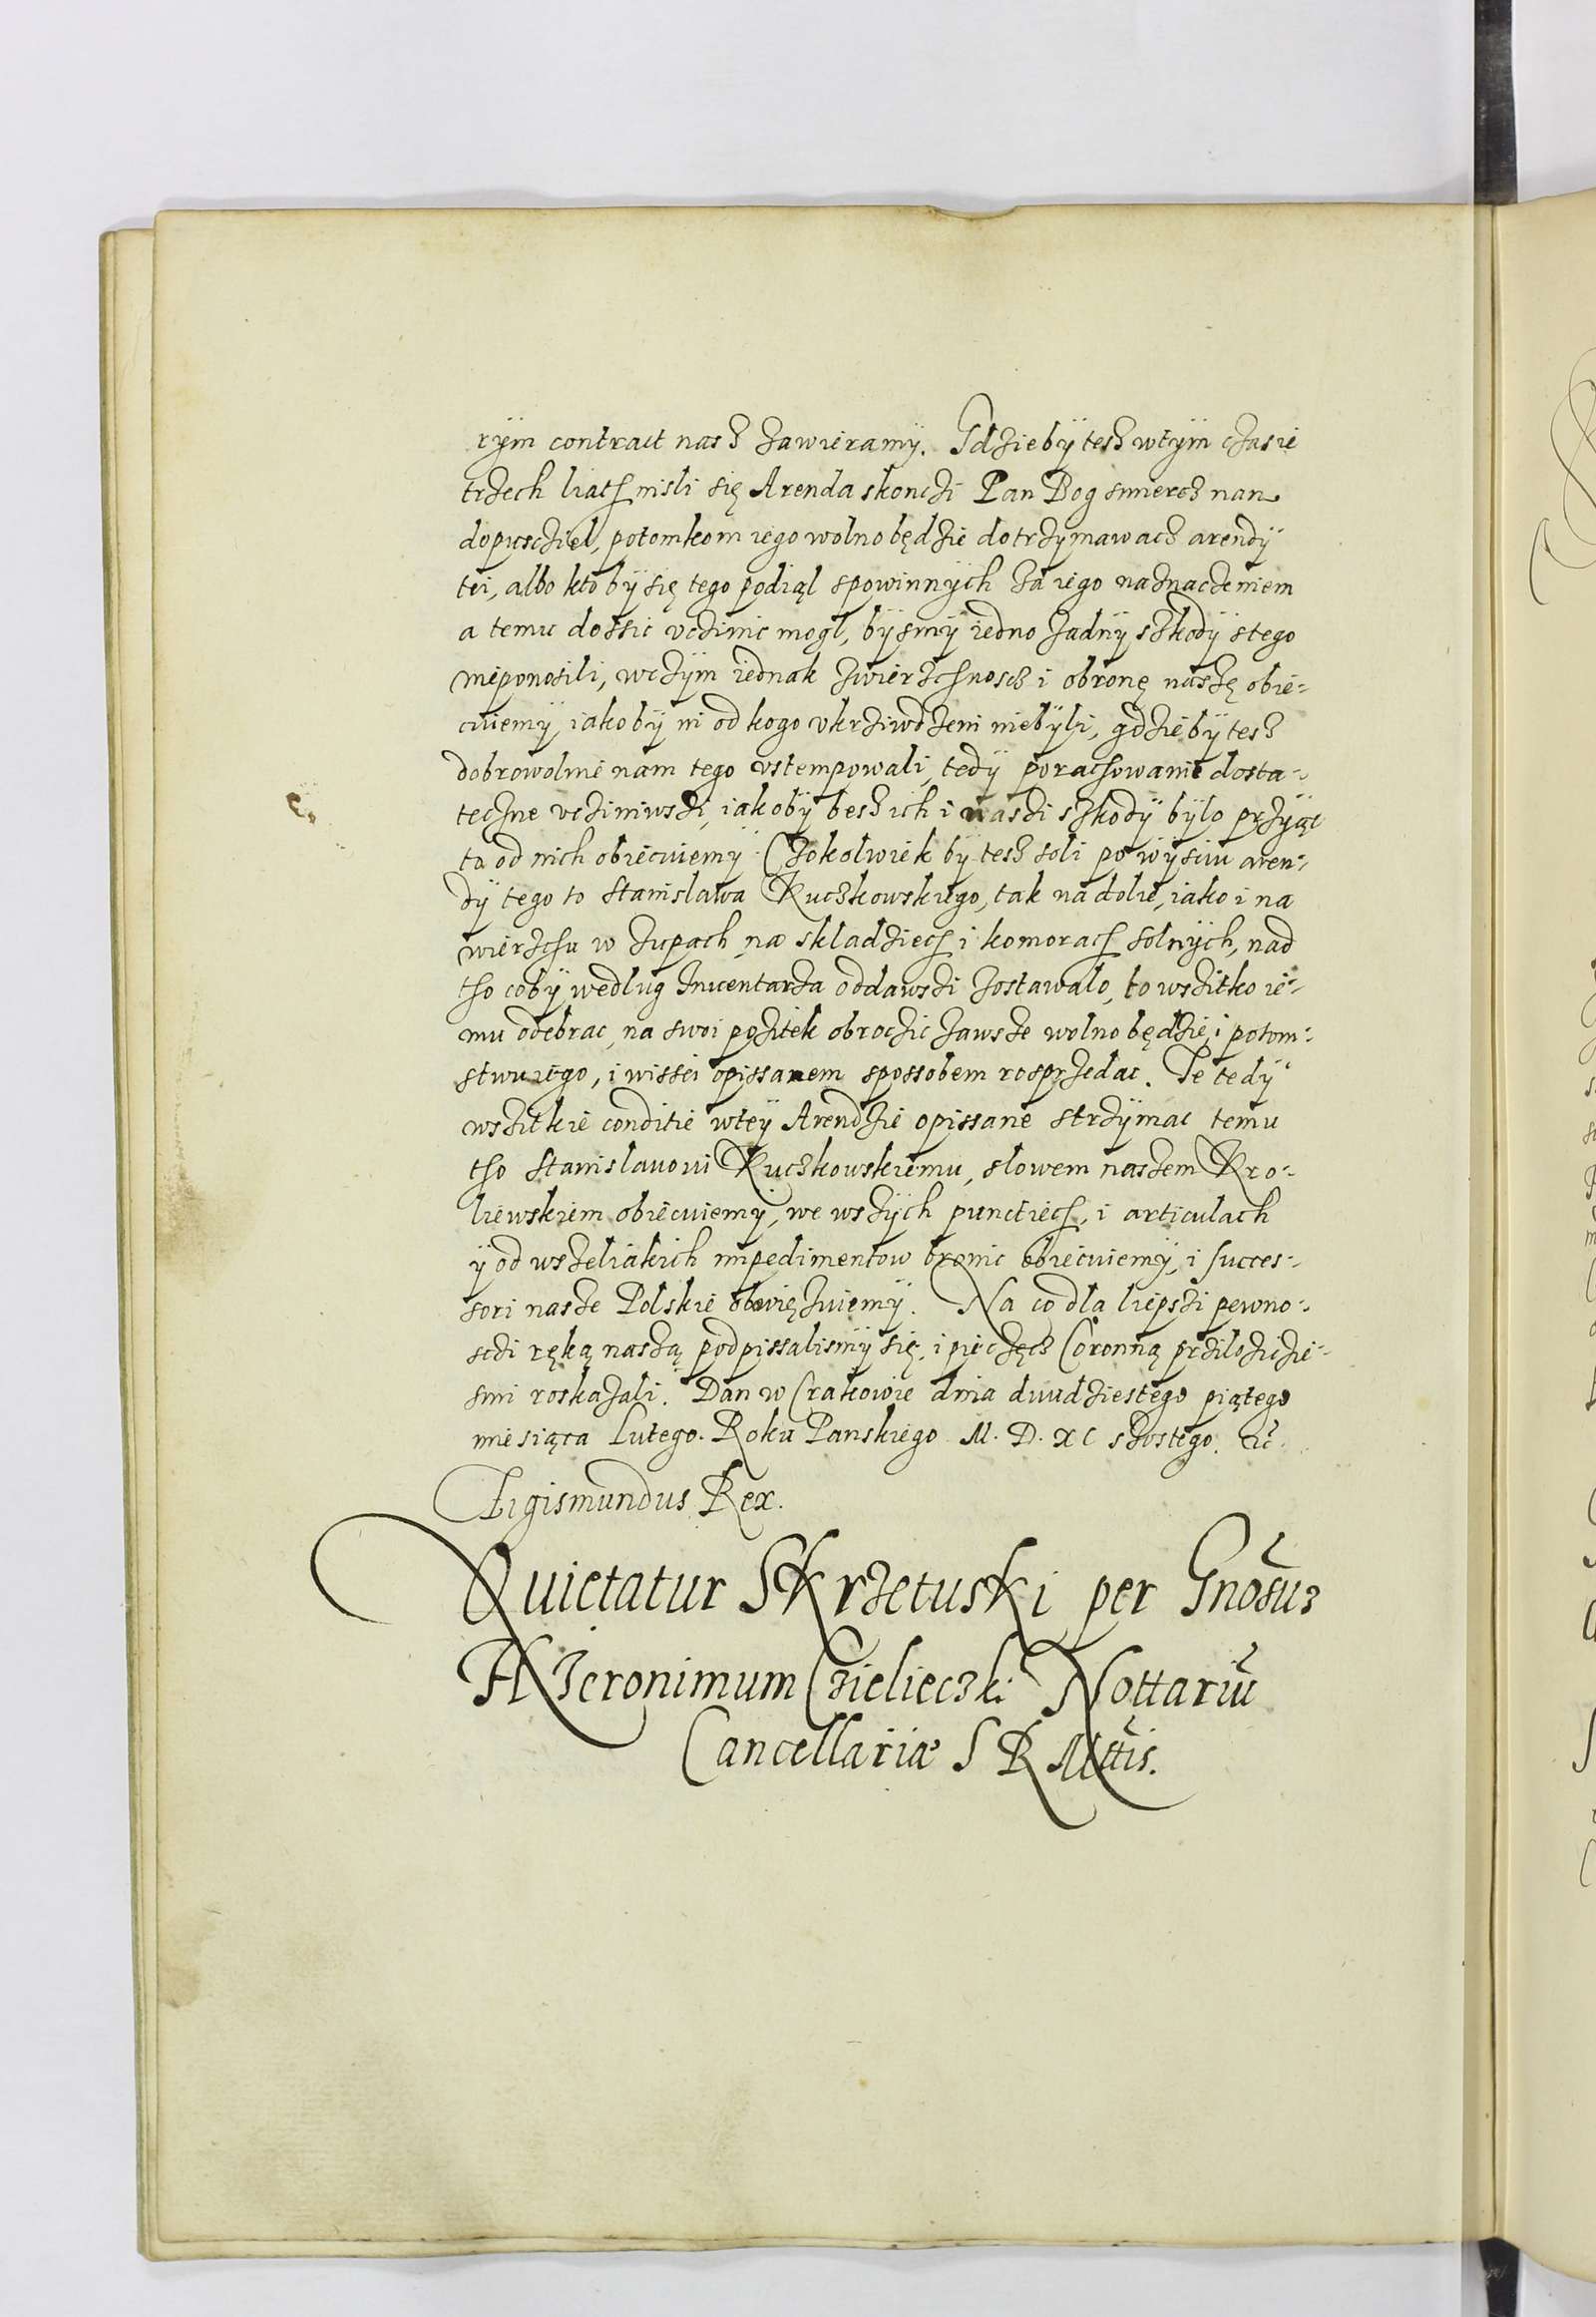 rÿm contract nasz zawieramÿ. Gdziebÿ tesz wtÿm czasie
trzech liath nisli się Arenda skonczi Pan Bog smiercz nan
dopusczieł, potomkom iego wolno będzie dotrzÿmawacz arendÿ
tei, albo kto bÿ się tego podiął spowinnÿch za iego naznaczeniem
a temu dossic vczinic mogł, bÿsmÿ iedno zadnÿ szkodÿ stego
nieponosili, wczÿm iednak zwierzchnoscz i obronę naszę obie-
cuiemÿ, iakobÿ ni od kogo vkrziwdzeni niebÿli, gdziebÿ tesz
dobrowolnie nam tego vstempowali, tedÿ porachowanie dosta-
teczne vcziniwszi, iakobÿ besz ich i naszi szkodÿ bÿlo przÿiąc
to od nich obiecuiemÿ. Czokolwiek bÿ tesz soli po wÿsciu aren-
dÿ tego to Stanislawa Ruczkowskiego, tak na dolie, iako i na
wierzchu w zupach, na skladziech i komorach solnÿch, nad
tho cobÿ wedlug Inuentarza oddawszi zostawalo, to wszitko ie-
mu odebrac, na swoi pozitek obroczic zawsze wolno będzie, i potom-
stwu iego, i wissei opissanem spossobem rosprzedac. Te tedÿ
wszitkie conditie wteÿ Arendzie opissane strzÿmac temu
tho Stanislauowi Ruczkowskiemu, slowem naszem Kro-
liewskiem obiecuiemÿ, we wszÿch punctiech, i articulach
ÿ od wszeliakich impedimentow bronic obiecuiemÿ, i succes-
sori nasze Polskie obwięzuiemÿ. Na co dla liepszi pewno-
sczi ręką naszą podpissalismÿ się, i pieczęcz Coronną prziloziczie-
smi roskazali. Dan w Crakowie dnia dwudziestego piątego
miesiąca Lutego. Roku Panskiego M. D. XC szostego. Etc.
Sigismundus Rex.
Quietatur SKrzetusKi per Gnosum
Hieronimum Czielieczki Nottariū
Cancellariæ S R Mttis.